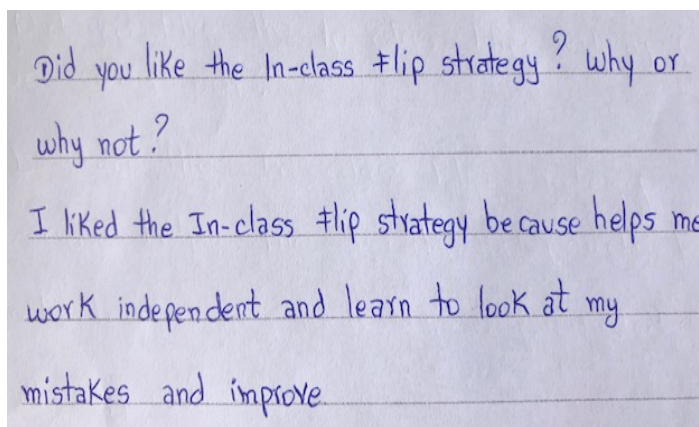 Did you like the In-class Flip strategy? Why or
why not?
I liked the In-class Flip strategy because helps me
work independent and learn to look at my
mistakes and improve